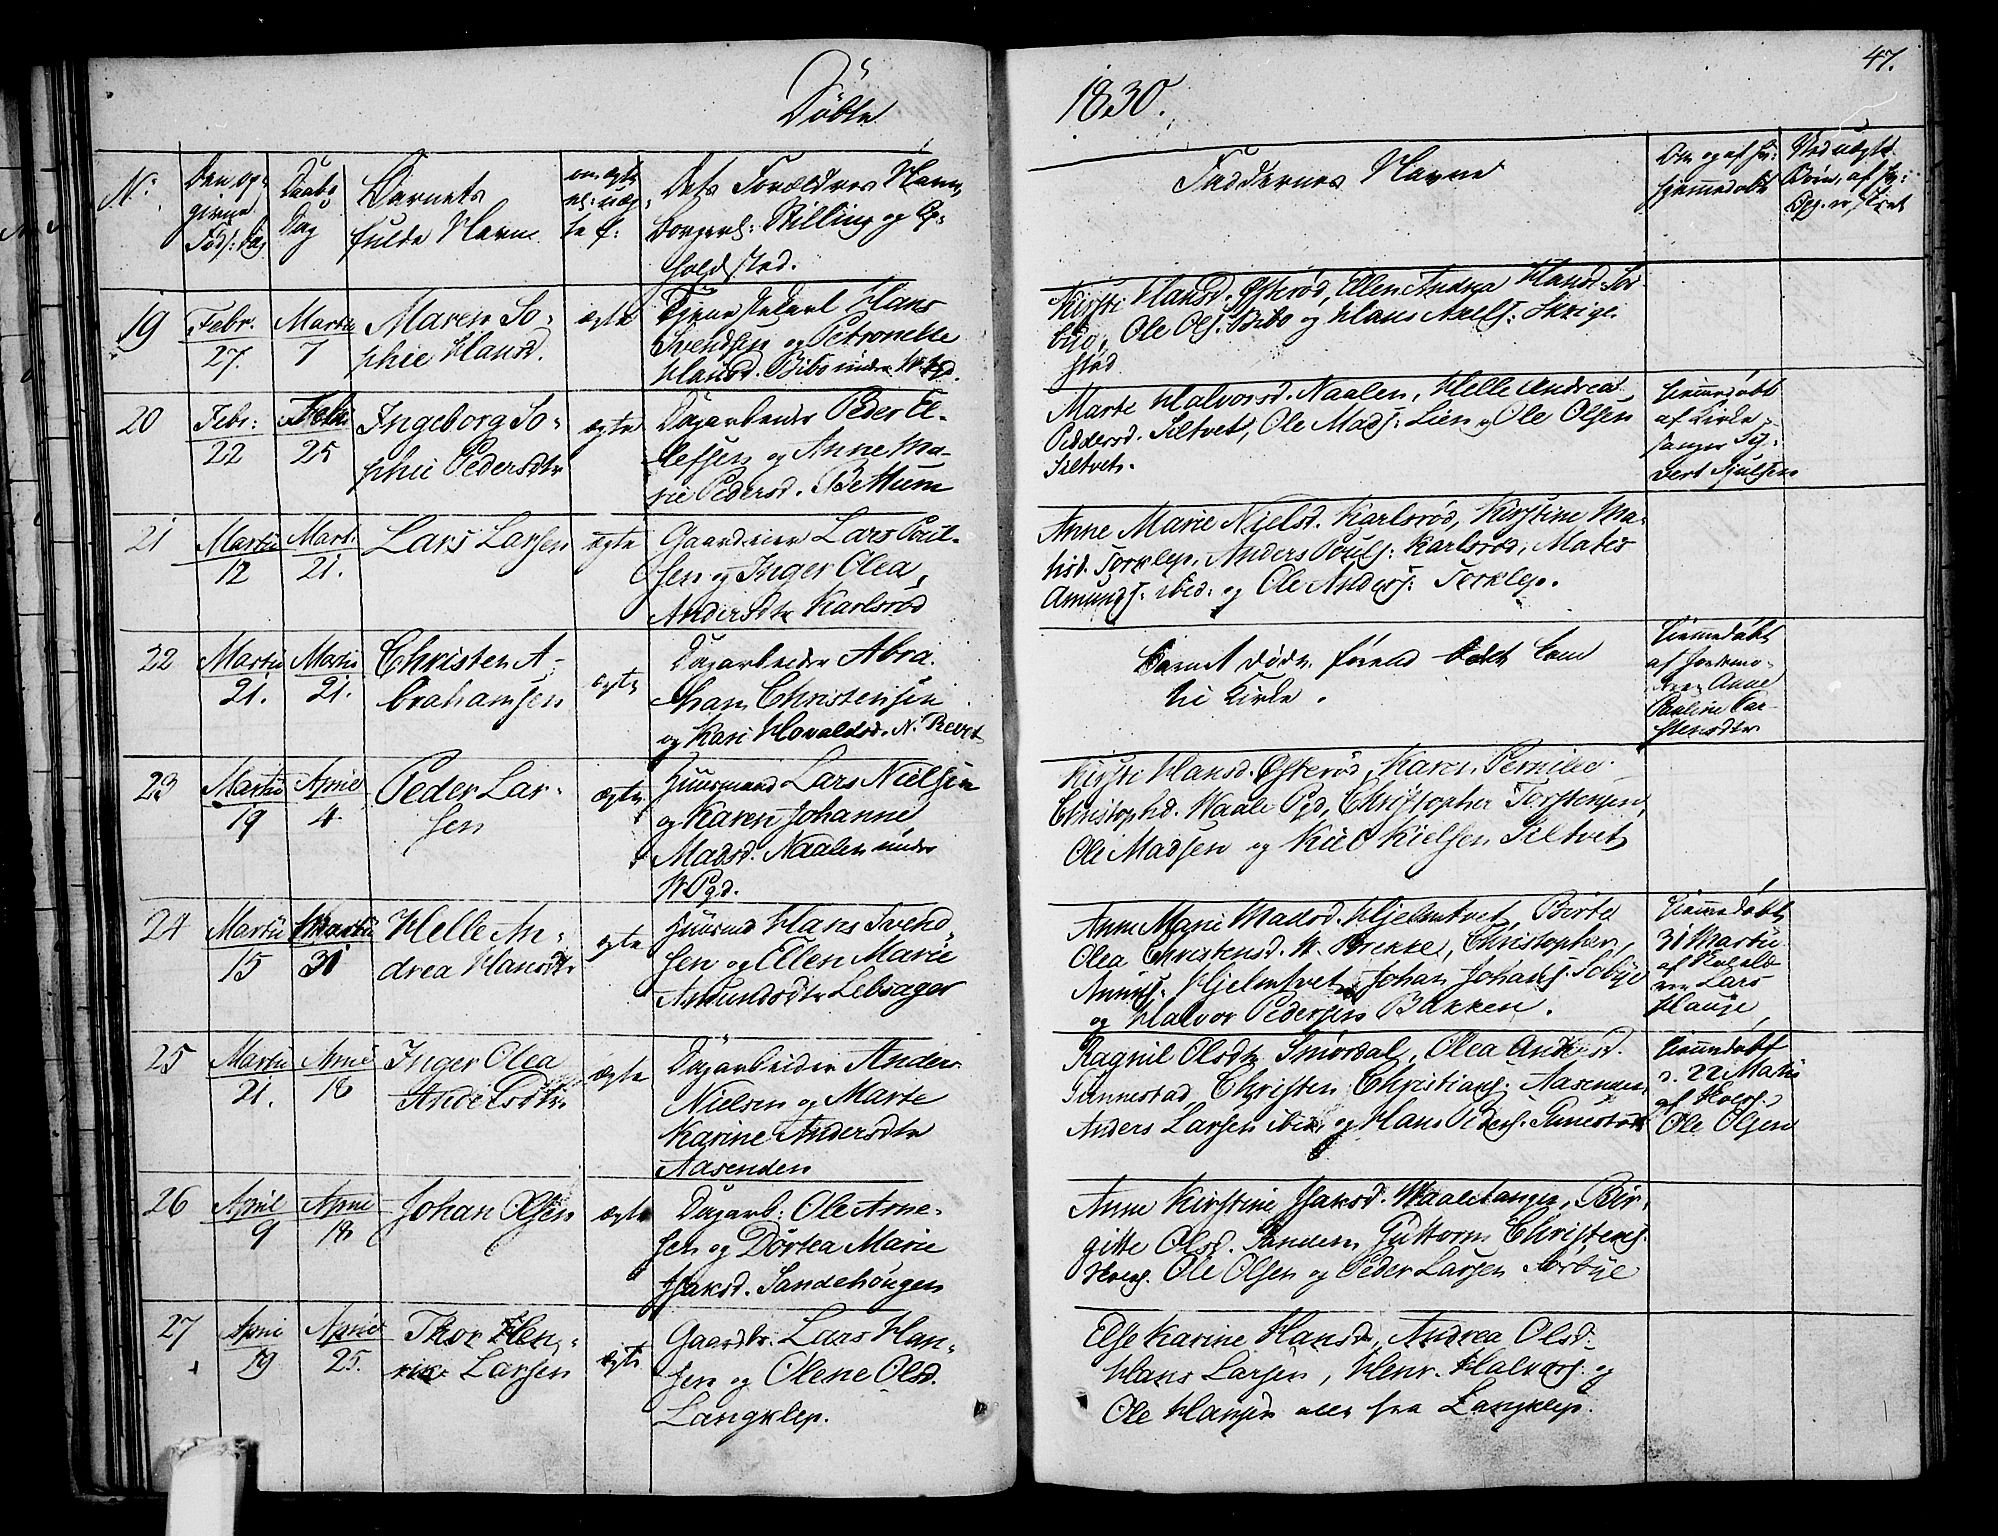 Döbte
1830.
47.
N:
Den op-
givne
Föds: Dag
Daabs
Dag
Barnets
fulde Navne
om ægte
el: uæg-
te f:
Dets Forældres Navne,
Borgerl: Stilling og Op-
holdsted.
Faddernes Navne
Om og af hv:
hjemmedöbt
19
Febr.
27.
Martii
7
Maren So-
phie Hansd.
ægte
Tjenestekarl Hans
Svendsen og Petronelle
Hansd. Bibo under W. Pgd.
Kirsti Hansd. Østeröd, Ellen Andrea Hansd. Sör
bÿe, Ole Ols: Bibo og Hans Axels: Skrige
stad
20
Febr:
22
Febr:
25
Ingeborg So-
phie Pedersdtr
ægte
Dagarbeider Peder El-
lefsen og Anne Ma-
rie Pedersd. Bettum
Marte Halvorsd. Naalen, Helle Andrea
Pedersd. Siltvet, Ole Mads: Lien og Ole Olsen
Siltvet.
Hiemmedöbt
af Kirke-
sanger Si-
vert Sjulsen
21
Martii
12
Mart.
21.
Lars Larsen
ægte
Gaardeier Lars Poul-
sen og Inger Olea
Andersdtr Karlsröd
Anne Marie Nielsd. Karlsröd, Kirstine Ma-
tisd. Torklep, Anders Pouls: Karlsröd, Matis
Amunds: ibid: og Ole Anders: Torklep.
22
Martii
21.
Martii
21.
Christen A-
brahamsen
ægte
Dagarbeider Abra-
ham Christensen
og Kari Havaldsd. N. Revet
Barnet döde förend det kom
til Kirke.
Hiemmedöbt
af Jordemo-
deren Anne
Pauline Car-
stensdtr
23
Martii
19
April
4.
Peder Lar-
sen
ægte
Huusmand Lars Nielsen
og Karen Johanne
Madsd. Naalen under
W. Pgd.
Kirsti Hansd. Østeröd, Karen Pernille
Christophd. Waale Pgd, Christopher Torstensen,
Ole Madsen og Kiel Kielsen Siltvet
24
Martii
15
Martii
31
Helle An-
drea Hansdtr
ægte
Huusmd Hans Svend-
sen og Ellen Marie
Amundsdtr Lebsager
Anne Marie Madsd. Hjelmtvet, Birte
Olea Christensd. W. Brekke, Christopher
Hjelmtvet, Johan Johans: Sobÿe
og Halvor Pedersen Bakken.
Hiemmedöbt
31 Martii
af
Lars
Hansen
25
Martii
21.
April
18
Inger Olea
Andersdtr.
ægte
Dagarbeider Anders
Nielsen og Marte
Karine Andersdtr
Aasenden
Ragnil Olsdtr Smördal, Olea Andersd.
Gunnestad, Christen Christians: Aasenden,
Anders Larsen ibid, og Hans Peders: Gunestad
Hiemmedöbt
d. 22 Martii
af
Ole Olsen
26
April
9
April
18
Johan Olsen
ægte
Dagarb: Ole Arne-
sen og Dortea Marie
Isaksd. Sandehougen
Anne Kirstine Isaksd. Waaletangen, Bir-
gitte Olsd. Sanden, Guttorm Christens:
Ole Olsen og Peder Larsen Sörbÿe
27
April
19
April
25.
Thor Hen-
rik Larsen
ægte
Gaardbr. Lars Han-
sen og Olene Olsd.
Langklep.
Else Karine Hansd, Andrea Olsd.
Hans Larsen, Henr. Halvors: og
Ole Hansen alle fra Langklep.